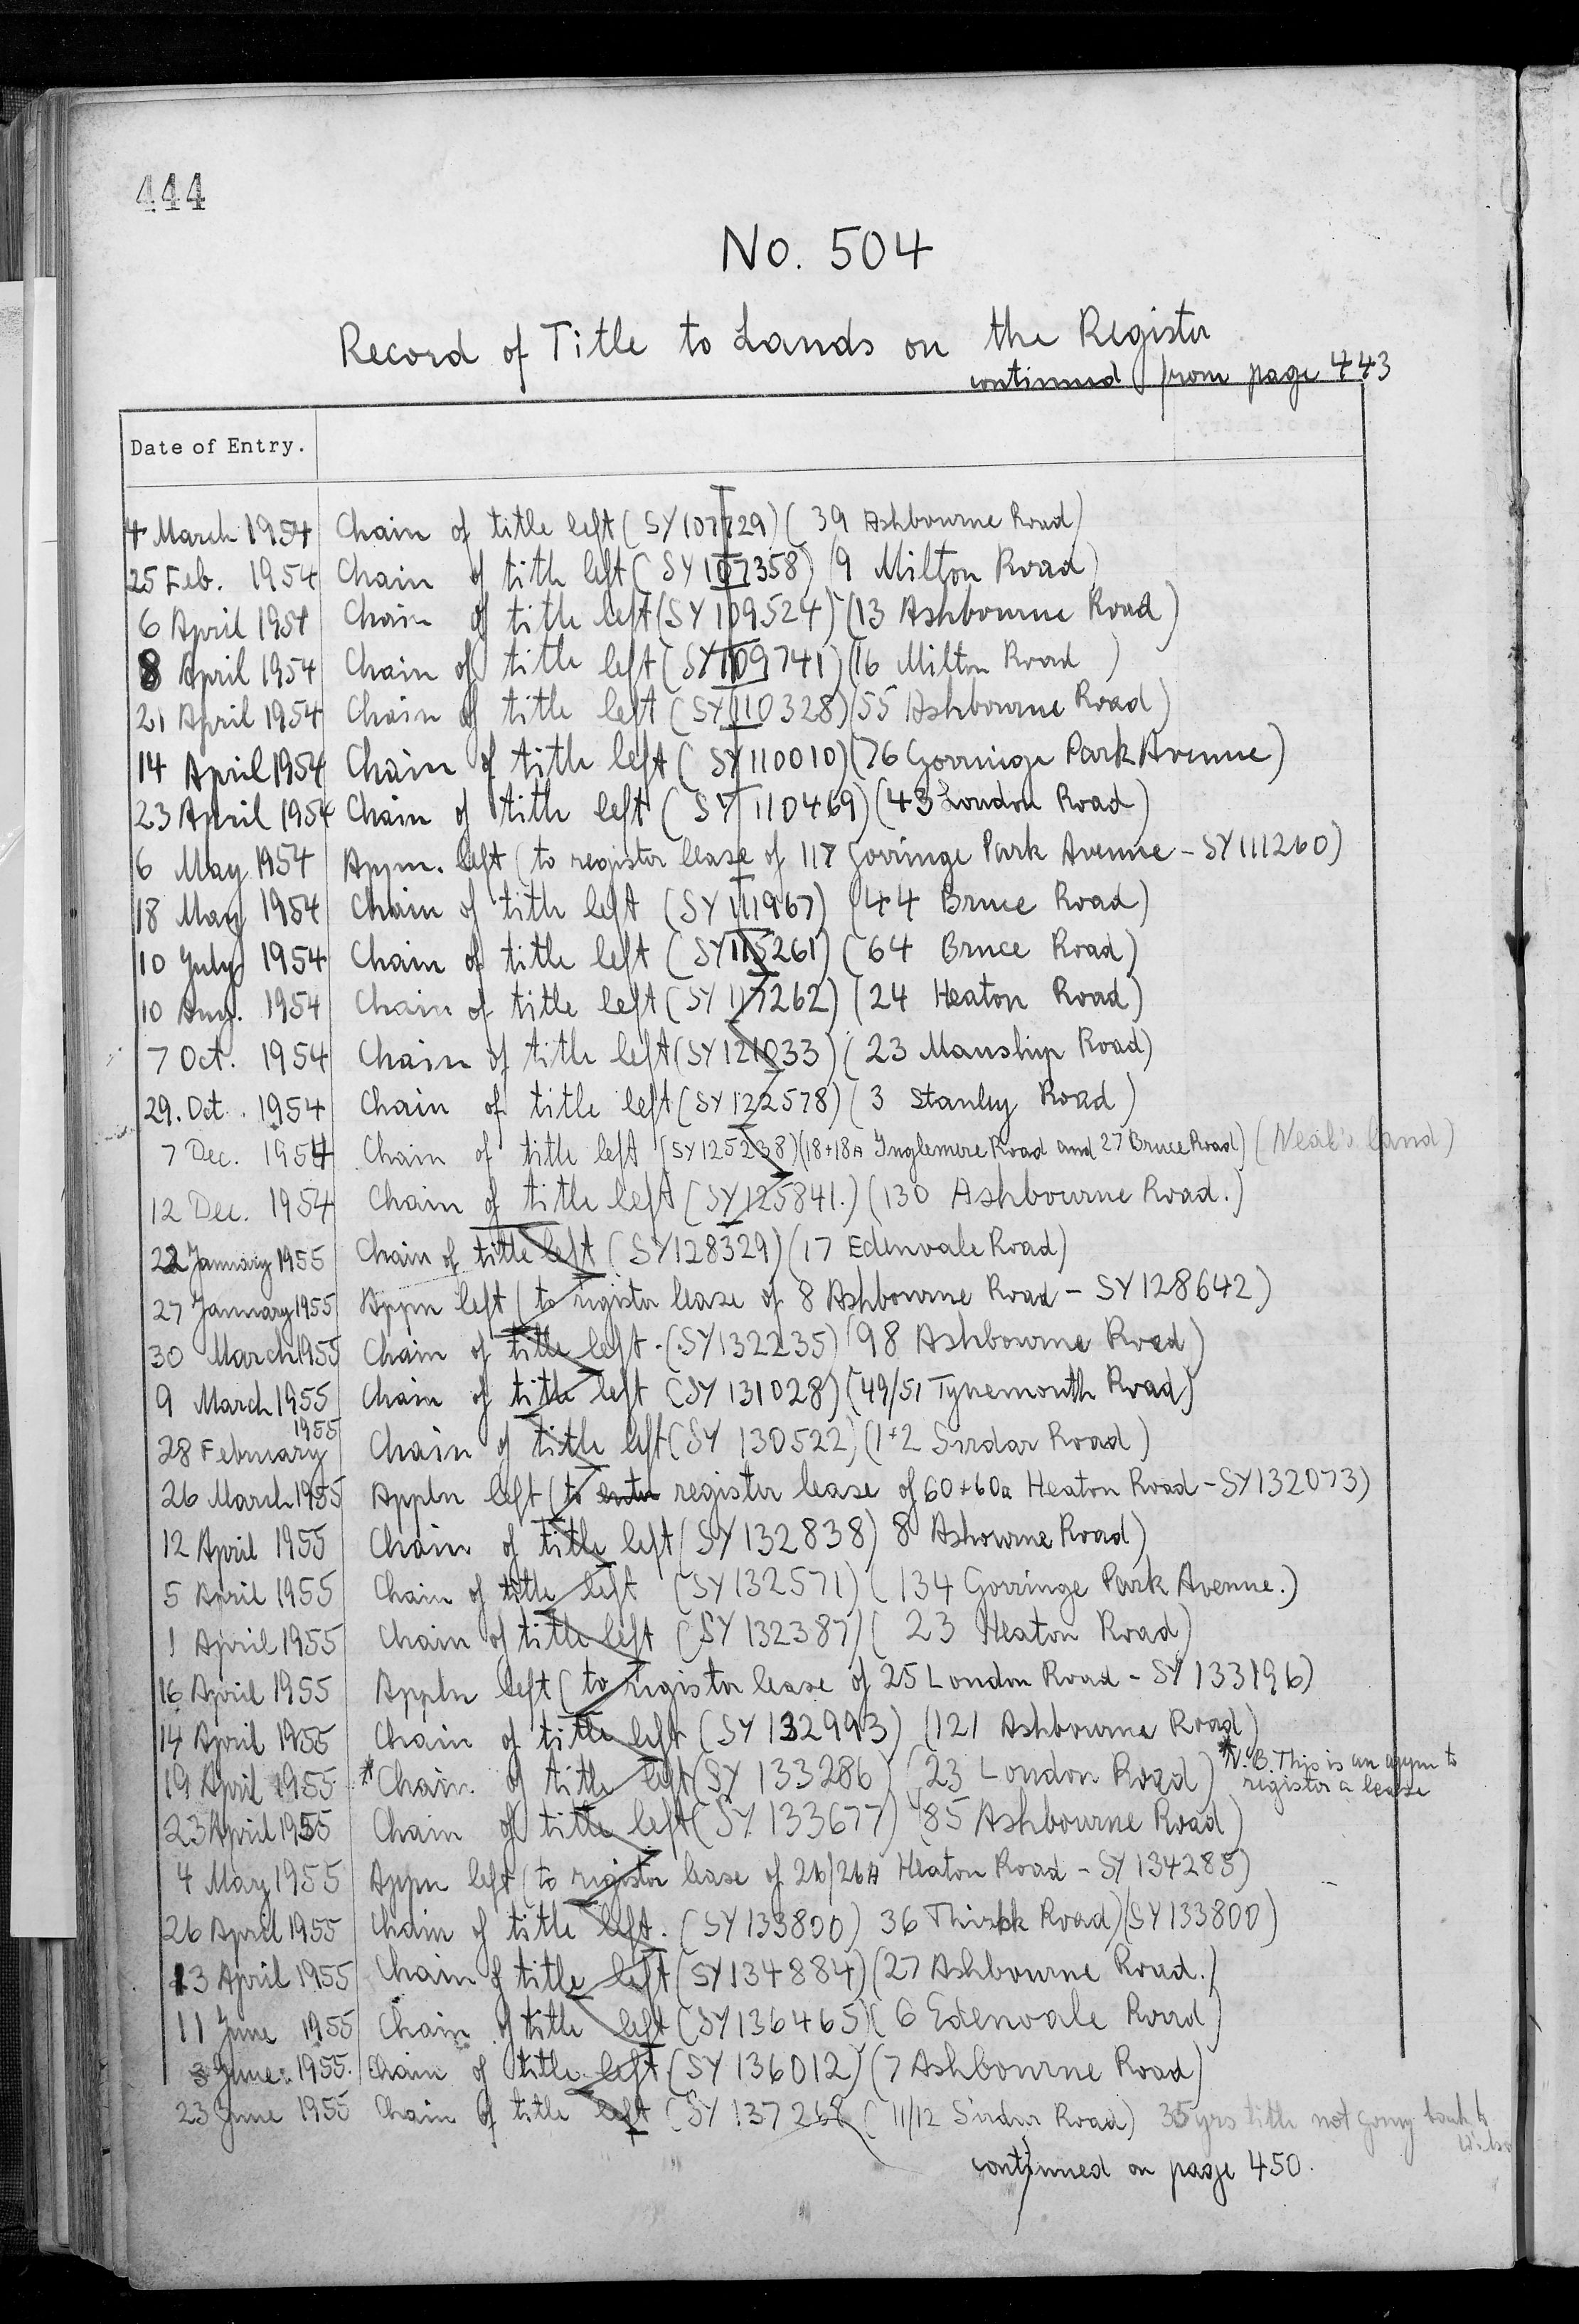 444
No. 504
Record of Title to Lands on the Register
continued from page 443
Date of Entry.
4 March 1954 Chain of title left (SY107729) (39 Ashbourne Road)
25 Feb. 1954 Chain of title left (SY107358) (9 Milton Road)
6 April 1954 Chain of title left (SY109524) (13 Ashbourne Road)
8 April 1954 Chain of title left (SY109741) (16 Milton Road)
21 April 1954 Chain of title left (SY110328) (55 Ashbourne Road)
14 April 1954 Chain of title left (SY110010) (76 Gorringe Park Avenue)
23 April 1954 Chain of title left (SY110469) (43 London Road)
6 May 1954 Appn. left (to register lease of 117 Gorringe Park Avenue - SY111260)
18 May 1954 Chain of title left (SY111967) (44 Bruce Road)
10 July 1954 Chain of title left (SY115261) (64 Bruce Road)
10 Aug. 1954 Chain of title left (SY117262) (24 Heaton Road)
7 Oct. 1954 Chain of title left (SY121033) (23 Manship Road)
29. Oct. 1954 Chain of title left (SY122578) (3 Stanley Road)
7 Dec. 1954 Chain of title left (SY125238) (18+18A Inglemere Road and 27 Bruce Road) (Neal's land)
12 Dec. 1954 Chain of title left (SY125841.) (130 Ashbourne Road.)
22 January 1955 Chain of title left (SY128329) (17 Edenvale Road)
27 January 1955 Appn left (to register lease of 8 Ashbourne Road - SY128642)
30 March 1955 Chain of title left. (SY132235) (98 Ashbourne Road)
9 March 1955 Chain of title left (SY131028) (49/51 Tynemouth Road)
28 February 1955 Chain of title left (SY 130522) (1+2 Sirdar Road)
26 March 1955 Appln left (to enter register lease of 60+60a Heaton Road - SY132073)
12 April 1955 Chain of title left (SY132838) 8 Ashowrne Road)
5 April 1955 Chain of title left (SY132571) (134 Gorringe Park Avenue.)
1 April 1955 Chain of title left (SY132387) (23 Heaton Road)
16 April 1955 Appln left (to register lease of 25 London Road - SY133196)
14 April 1955 Chain of title left (SY132993) (121 Ashbourne Road)
19 April 1955 *Chain of title left (SY133286) (23 London Road) *N.B. This is an appn to
register a lease
23 April 1955 Chain of title left (SY133677) (85 Ashbourne Road)
4 May 1955 Appn left (to register lease of 26/26A Heaton Road - SY134285)
26 April 1955 Chain of title left. (SY133800) 36 Thirsk Road) (SY133800)
13 April 1955 Chain of title left (SY134884) (27 Ashbourne Road.)
11 June 1955 Chain of title left (SY136465) (6 Edenvale Road)
3 June. 1955. Chain of title left (SY136012) (7 Ashbourne Road)
23 June 1955 Chain of title left (SY137268 (11/12 Sirdar Road) 35 yrs title not going back to
continued on page 450.